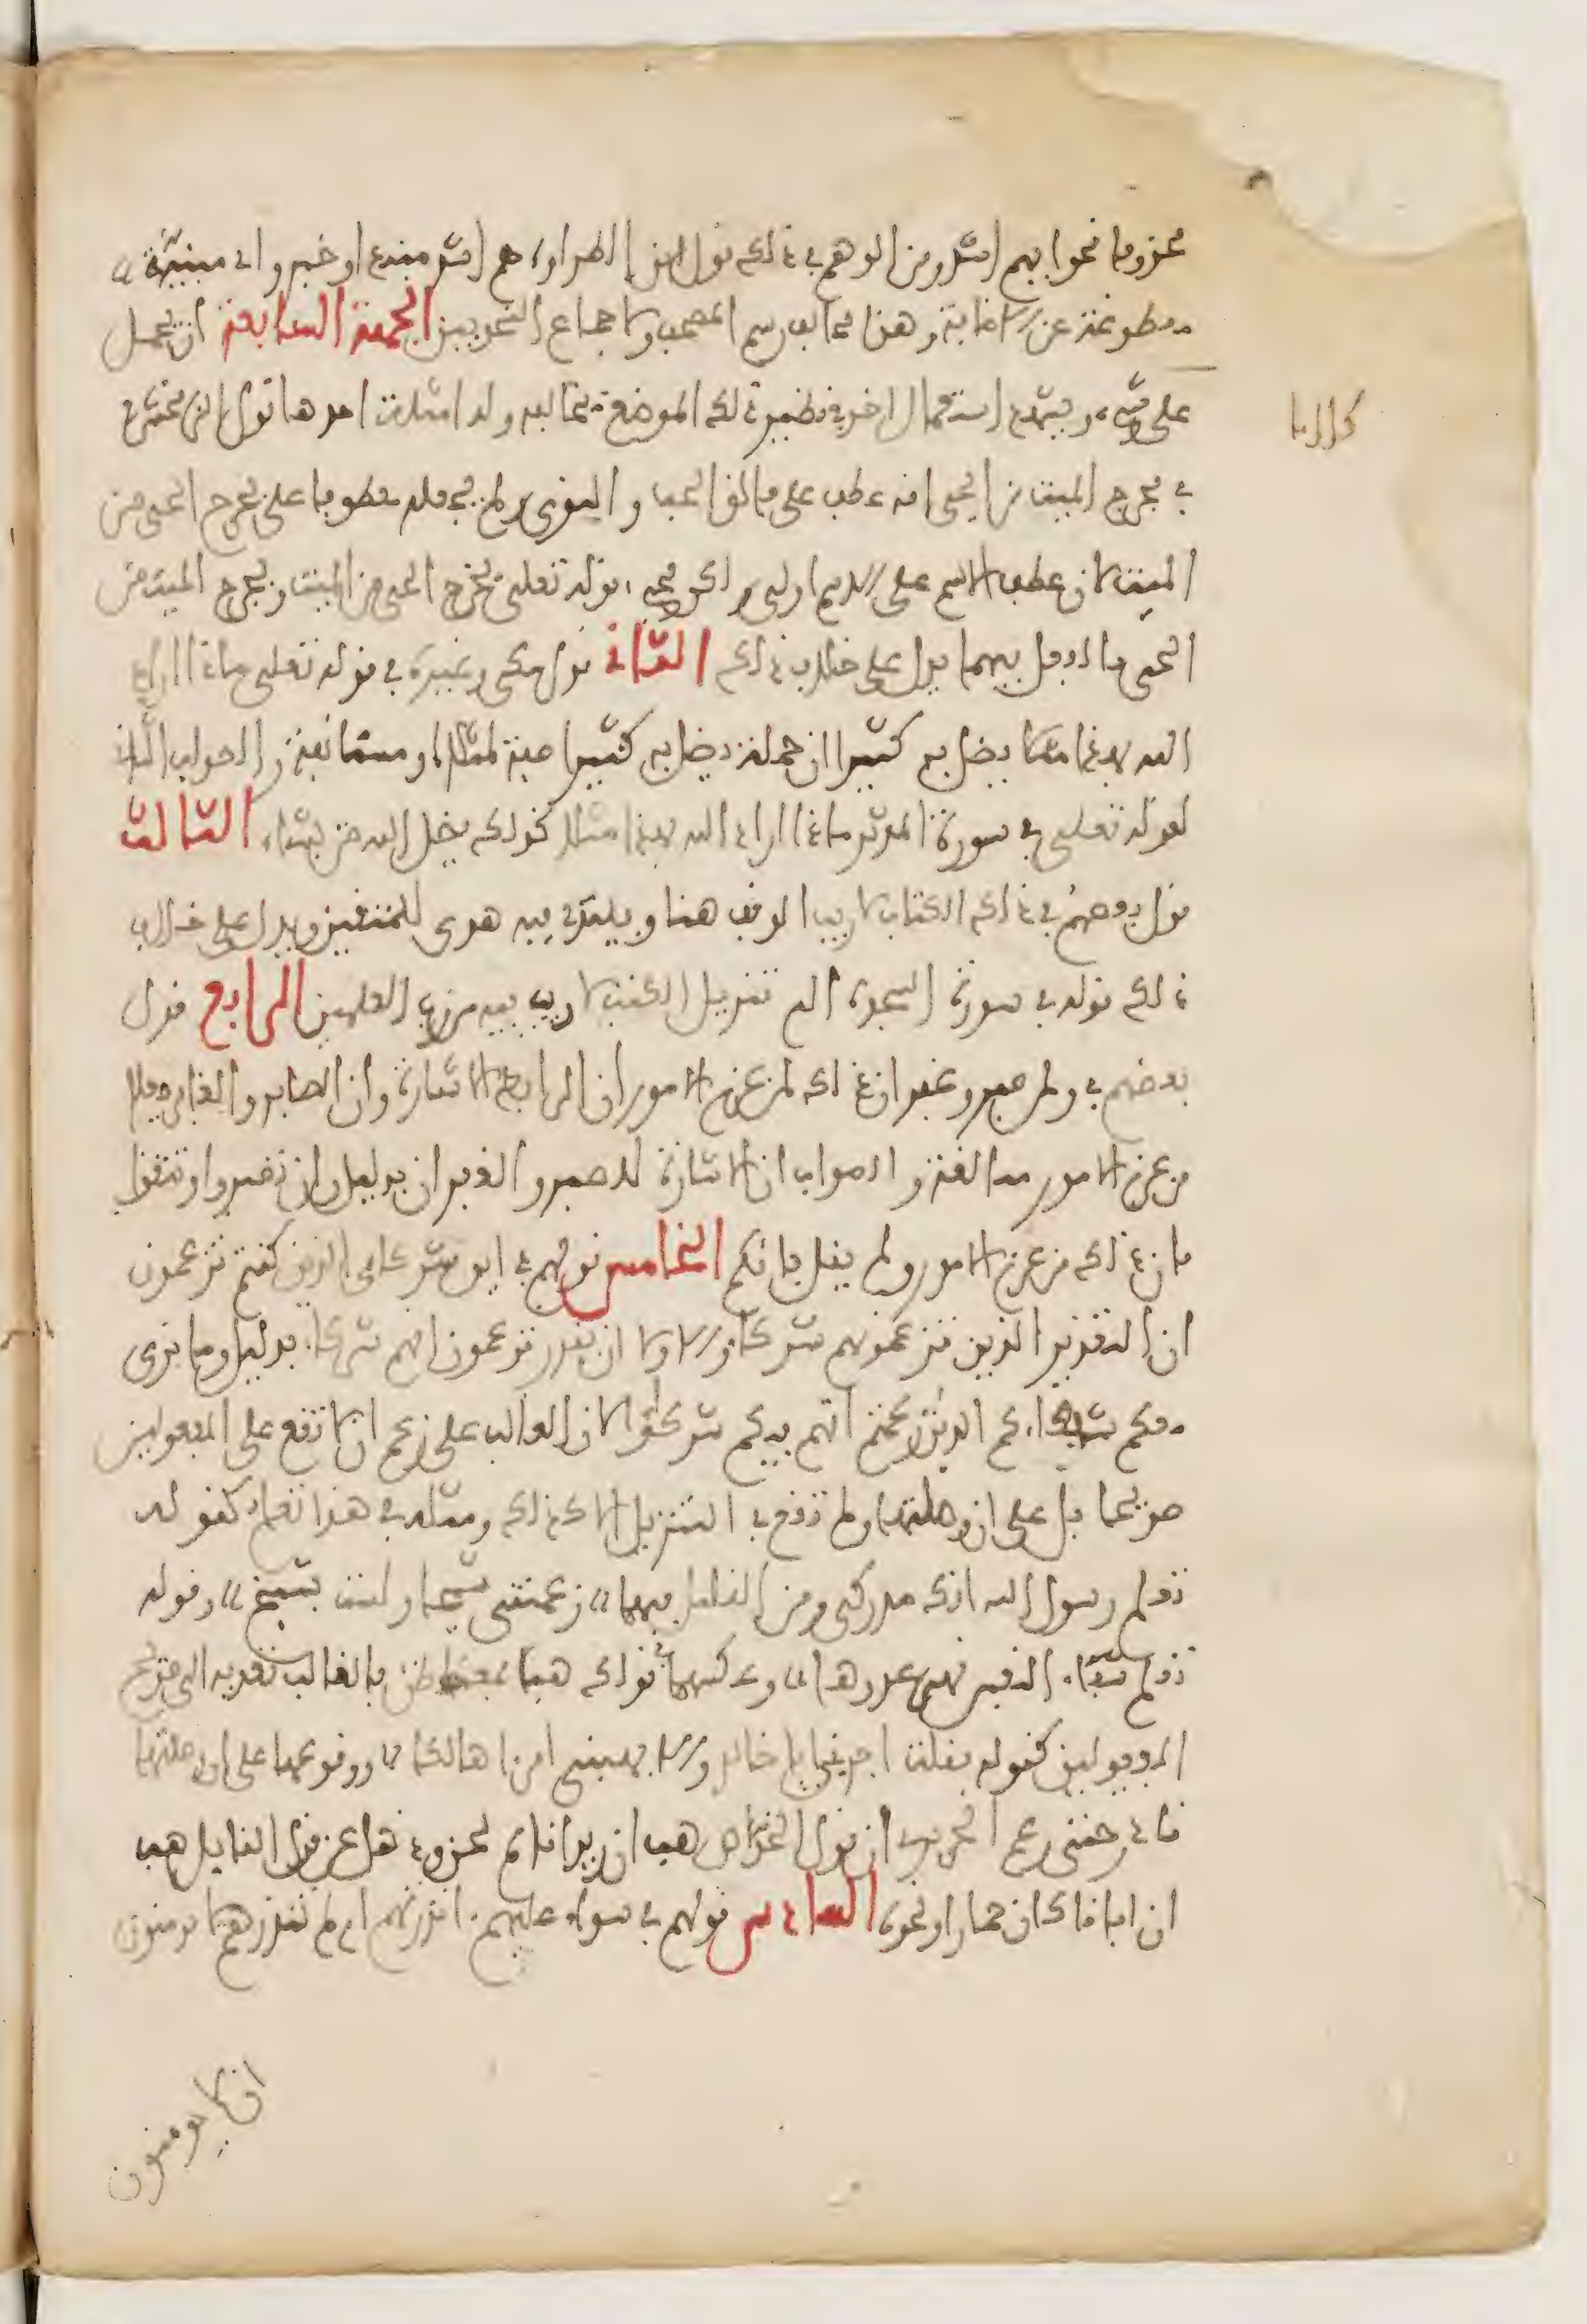 محذوفا نحوا بهم اشد ومن الوهم في ذلك قول ابن الطراوة هم اشد مبتدء او خبر واي مبنية
مقطوعة عن الاضافة وهذا مخالف رسم المصحف ولاجماع النحويين الجهة السابعة ان يحمل
على شيء ويشهد استعمال اخر في نظير ذلك الموضع بخالفه وله امثلة احدها قول الزمخشري
في مخرج الميت من الحي انه عطف على فالق الحب والنوى ولم يجعله معطوفا على يخرج الحي من
الميت لان عطف الاسم على الاسم اولى ولكن مجيء قوله تعلى يخرج الحي من الميت ويخرج الميت من
الحي بالفعل فيهما يدل على خلاف ذلك الثاني قول مكي وغيره في قوله تعلى ماذا اراد
الله بهذا مثلا يضل به كثيرا ان جملة يضل به كثيرا صفة لمثلا او مستانفة والصواب الثاني
لقوله تعلى في سورة المدثر ماذا اراد الله بهذا مثلا كذلك يضل الله من يشاء الثالث
قول بعضهم في ذلك الكتاب لا ريب الوقف هنا ويبتدئ فيه هدى للمتقين ويدل على خلاف
ذلك قوله في سورة السجدة الم تنزيل الكتب لا ريب فيه من رب العلمين الرابع قول
بعضهم في ولمن صبر وغفر ان ذلك لمن عزم الامور ان الرابط الاشارة وان الصابر والغافر جعلا
من عزم الامور مبالغة والصواب ان الاشارة للصبر والغفران بدليل وان تصبروا وتتقوا
فان ذلك من عزم الامور ولم يقل فانكم الخامس قولهم في اين شركاءي الذين كنتم تزعمون
ان التقدير الذين تزعمونهم شركاء والاولى ان يقدر تزعمون انهم شركاء بدليل وما نرى
معكم شفعاءكم الذين زعمتم انهم فيكم شركؤا لان الغالب على زعم ان لا تقع على المفعولين
صريحا بل على ان وصلتها ولم تقع في التنزيل الا كذلك ومثله في هذا تعلم كقوله
تعلم رسول الله انك مدركي ومن القليل فيهما زعمتني شيخا ولست بشيخ وقوله
تعلم شفاء النفس قهر عدوها وعكسهما في ذلك هب بمعنى ظن فالغالب تعديه الى صريح
المفعولين كقوله فقلت اجرني ابا خالد والا فهبني امرءا هالكا ووقوعها على ان وصلتها
نادر حتى زعم الحريري ان قول الخواص هب ان زيدا قايم لحن وذهل عن قول القايل هب
ان ابانا كان حمارا ونحوه السادس قولهم في سواء عليهم اانذرتهم ام لم تنذرهم لا يومنون
ان لا يومنون